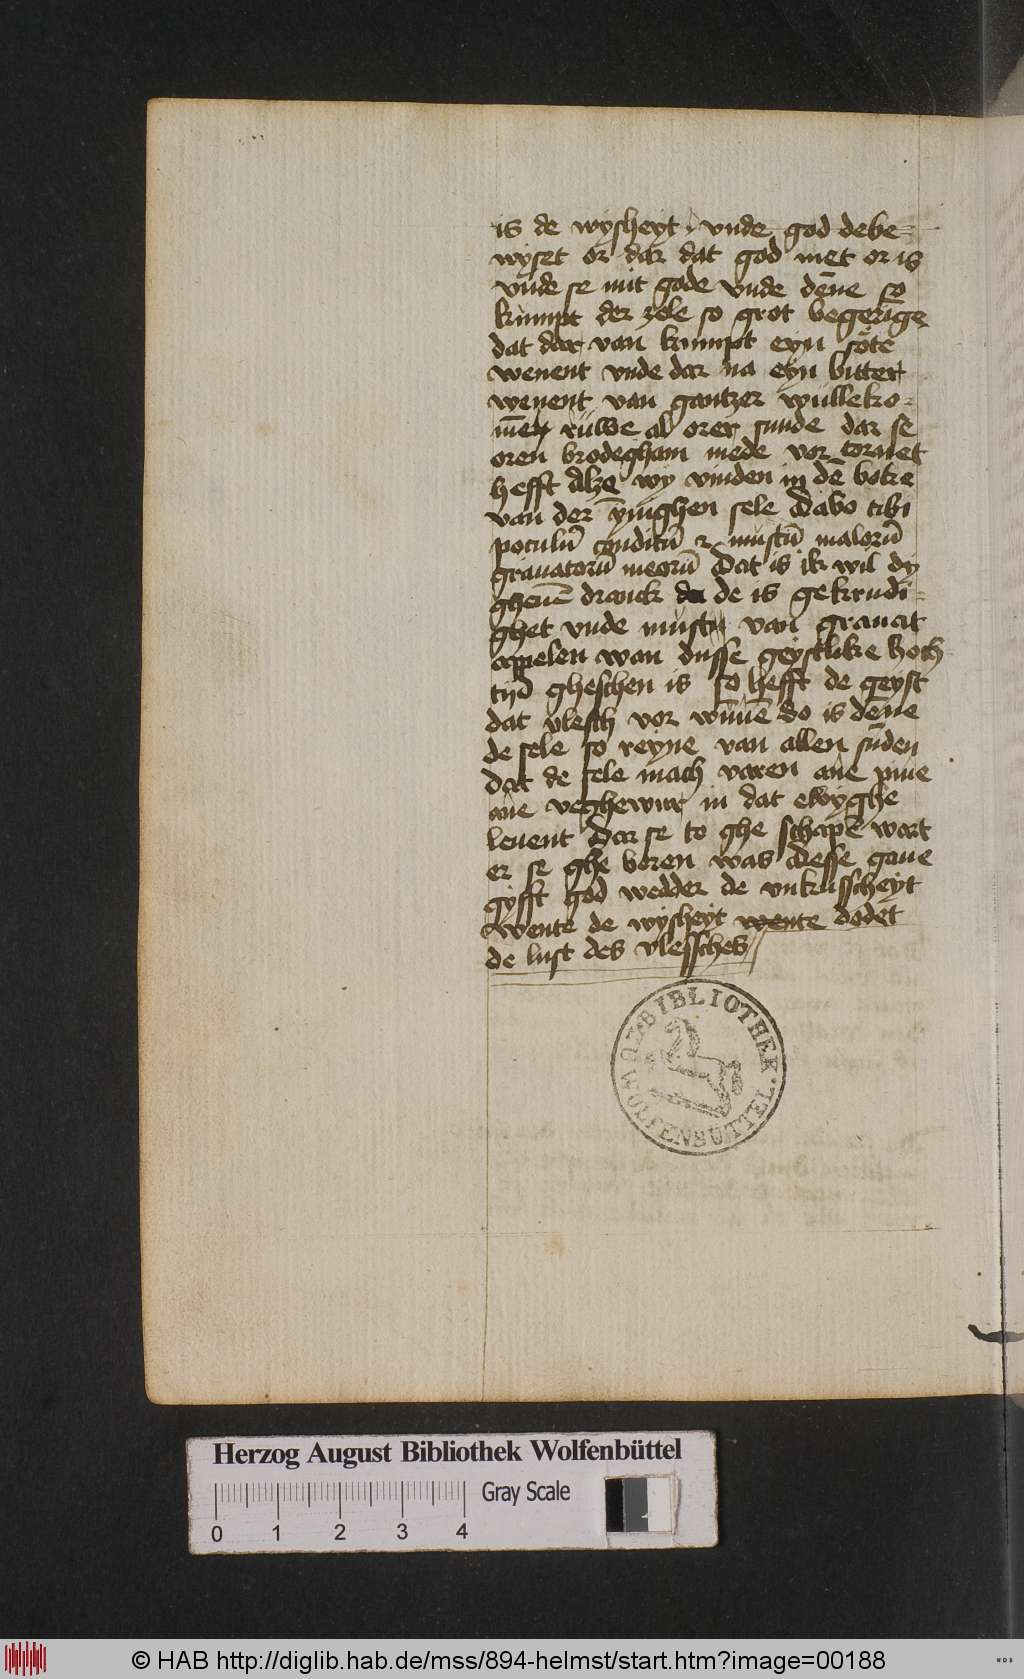 is de wysheyt vnde god debe-
wyset or dar dat god met or is
vnde se mit gode vnde dēne so
kumpt der zele so grot begeringe
dat dar van kumpt eyn söte
wenent vnde dar na eyn bitter
wenent van gantzer wulleko-
men rüwe al orer sunde dar se
oren brodegham mede vor tornet
hefft Alze wy vinden in dē boke
van der ynighen sele Dabo tibi
poculū conditū & mustū malorū
granatorū meorū Dat is ik wil dy
gheuē dranck de is gekrudi-
ghet vnde must van granat
appelen wan dusse geystlike hoch
tijd gheschen is so hefft de geyst
dat vlesch vor wūnē So is dēne
de sele so reyne van allen sūden
Dat de sele mach varen ane pine
ane veghewur in dat ewyghe
leuent Dar se to ghe schapē wart
er se ghe boren was desse gaue
gyfft god wedder de vnkusscheyt
wente de wysheyt wente dodet
de lust des vlessches
BIBLIOTHEK
ZU
WOLFENBÜTTEL
Herzog August Bibliothek Wolfenbüttel
Gray Scale
0 1 2 3 4
© HAB http://diglib.hab.de/mss/894-helmst/start.htm?image=00188